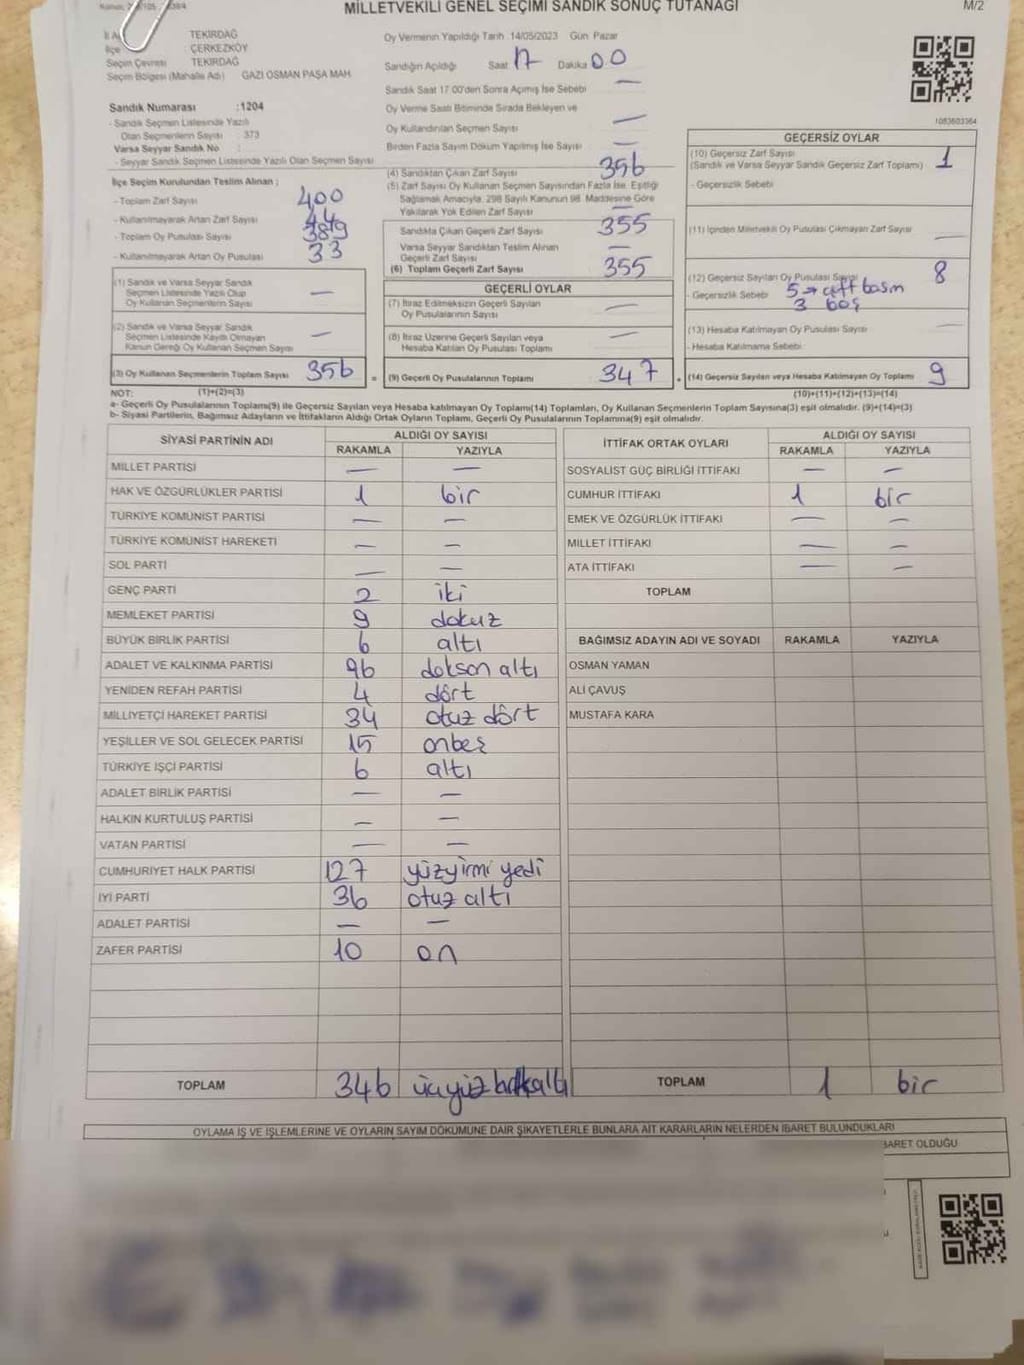 MİLLETVEKİLİ GENEL SEÇİMİ SANDIK SONUÇ TUTANAĞI
M/2
TEKİRDAĞ
İlçe : ÇERKEZKÖY
Seçim Çevresi TEKİRDAĞ
Seçim Bölgesi (Mahalle Adı) GAZİ OSMAN PAŞA MAH
Sandık Numarası :1204
- Sandık Seçmen Listesinde Yazılı
Olan Seçmenlerin Sayısı : 373
Varsa Seyyar Sandık No :
- Seyyar Sandık Seçmen Listesinde Yazılı Olan Seçmen Sayısı
Oy Vermenin Yapıldığı Tarih :14/05/2023 Gün Pazar
Sandığın Açıldığı Saat 17 Dakika 00
Sandık Saat 17:00'den Sonra Açımış İse Sebebi —
Oy Verme Saati Bitiminde Sırada Bekleyen ve
Oy Kullandırılan Seçmen Sayısı —
Birden Fazla Sayım Döküm Yapılmış İse Sayısı —
1083603364
İlçe Seçim Kurulundan Teslim Alınan :
- Toplam Zarf Sayısı 400
- Kullanılmayarak Artan Zarf Sayısı 44
- Toplam Oy Pusulası Sayısı 389
- Kullanılmayarak Artan Oy Pusulası 33
(1) Sandık ve Varsa Seyyar Sandık
Seçmen Listesinde Yazılı Olup
Oy Kullanan Seçmenlerin Sayısı —
(2) Sandık ve Varsa Seyyar Sandık
Seçmen Listesinde Kayıtlı Olmayan
Kanun Gereği Oy Kullanan Seçmen Sayısı —
(3) Oy Kullanan Seçmenlerin Toplam Sayısı 356
(4) Sandıktan Çıkan Zarf Sayısı 356
(5) Zarf Sayısı Oy Kullanan Seçmen Sayısından Fazla İse, Eşitliği
Sağlamak Amacıyla, 298 Sayılı Kanunun 98. Maddesine Göre
Yakılarak Yok Edilen Zarf Sayısı —
Sandıkta Çıkan Geçerli Zarf Sayısı 355
Varsa Seyyar Sandıktan Teslim Alınan
Geçerli Zarf Sayısı —
(6) Toplam Geçerli Zarf Sayısı 355
GEÇERLİ OYLAR
(7) İtiraz Edilmeksizin Geçerli Sayılan
Oy Pusulalarının Sayısı —
(8) İtiraz Üzerine Geçerli Sayılan veya
Hesaba Katılan Oy Pusulası Toplamı —
(9) Geçerli Oy Pusulalarının Toplamı 347
GEÇERSİZ OYLAR
(10) Geçersiz Zarf Sayısı 1
(Sandık ve Varsa Seyyar Sandık Geçersiz Zarf Toplamı)
- Geçersizlik Sebebi
(11) İçinden Milletvekili Oy Pusulası Çıkmayan Zarf Sayısı —
(12) Geçersiz Sayılan Oy Pusulası Sayısı 8
- Geçersizlik Sebebi 5 → çift basım
3 boş
(13) Hesaba Katılmayan Oy Pusulası Sayısı —
- Hesaba Katılmama Sebebi
(14) Geçersiz Sayılan veya Hesaba Katılmayan Oy Toplamı 9
NOT: (1)+(2)=(3) (10)+(11)+(12)+(13)=(14)
a- Geçerli Oy Pusulalarının Toplamı(9) ile Geçersiz Sayılan veya Hesaba katılmayan Oy Toplamı(14) Toplamları, Oy Kullanan Seçmenlerin Toplam Sayısına(3) eşit olmalıdır. (9)+(14)=(3)
b- Siyasi Partilerin, Bağımsız Adayların ve İttifakların Aldığı Ortak Oyların Toplamı, Geçerli Oy Pusulalarının Toplamına(9) eşit olmalıdır.
SİYASİ PARTİNİN ADI ALDIĞI OY SAYISI
RAKAMLA YAZIYLA
MİLLET PARTİSİ — —
HAK VE ÖZGÜRLÜKLER PARTİSİ 1 bir
TÜRKİYE KOMÜNİST PARTİSİ — —
TÜRKİYE KOMÜNİST HAREKETİ — —
SOL PARTİ — —
GENÇ PARTİ 2 iki
MEMLEKET PARTİSİ 9 dokuz
BÜYÜK BİRLİK PARTİSİ 6 altı
ADALET VE KALKINMA PARTİSİ 96 dokson altı
YENİDEN REFAH PARTİSİ 4 dört
MİLLİYETÇİ HAREKET PARTİSİ 34 otuz dört
YEŞİLLER VE SOL GELECEK PARTİSİ 15 onbeş
TÜRKİYE İŞÇİ PARTİSİ 6 altı
ADALET BİRLİK PARTİSİ — —
HALKIN KURTULUŞ PARTİSİ — —
VATAN PARTİSİ — —
CUMHURİYET HALK PARTİSİ 127 yüzyirmi yedi
İYİ PARTİ 36 otuz altı
ADALET PARTİSİ — —
ZAFER PARTİSİ 10 on
TOPLAM 346
İTTİFAK ORTAK OYLARI ALDIĞI OY SAYISI
RAKAMLA YAZIYLA
SOSYALİST GÜÇ BİRLİĞİ İTTİFAKI — —
CUMHUR İTTİFAKI 1 bir
EMEK VE ÖZGÜRLÜK İTTİFAKI — —
MİLLET İTTİFAKI — —
ATA İTTİFAKI — —
TOPLAM
BAĞIMSIZ ADAYIN ADI VE SOYADI RAKAMLA YAZIYLA
OSMAN YAMAN
ALİ ÇAVUŞ
MUSTAFA KARA
TOPLAM 1 bir
OYLAMA İŞ VE İŞLEMLERİNE VE OYLARIN SAYIM DÖKÜMÜNE DAİR ŞİKAYETLERLE BUNLARA AİT KARARLARIN NELERDEN İBARET BULUNDUKLARI
BARET OLDUĞU